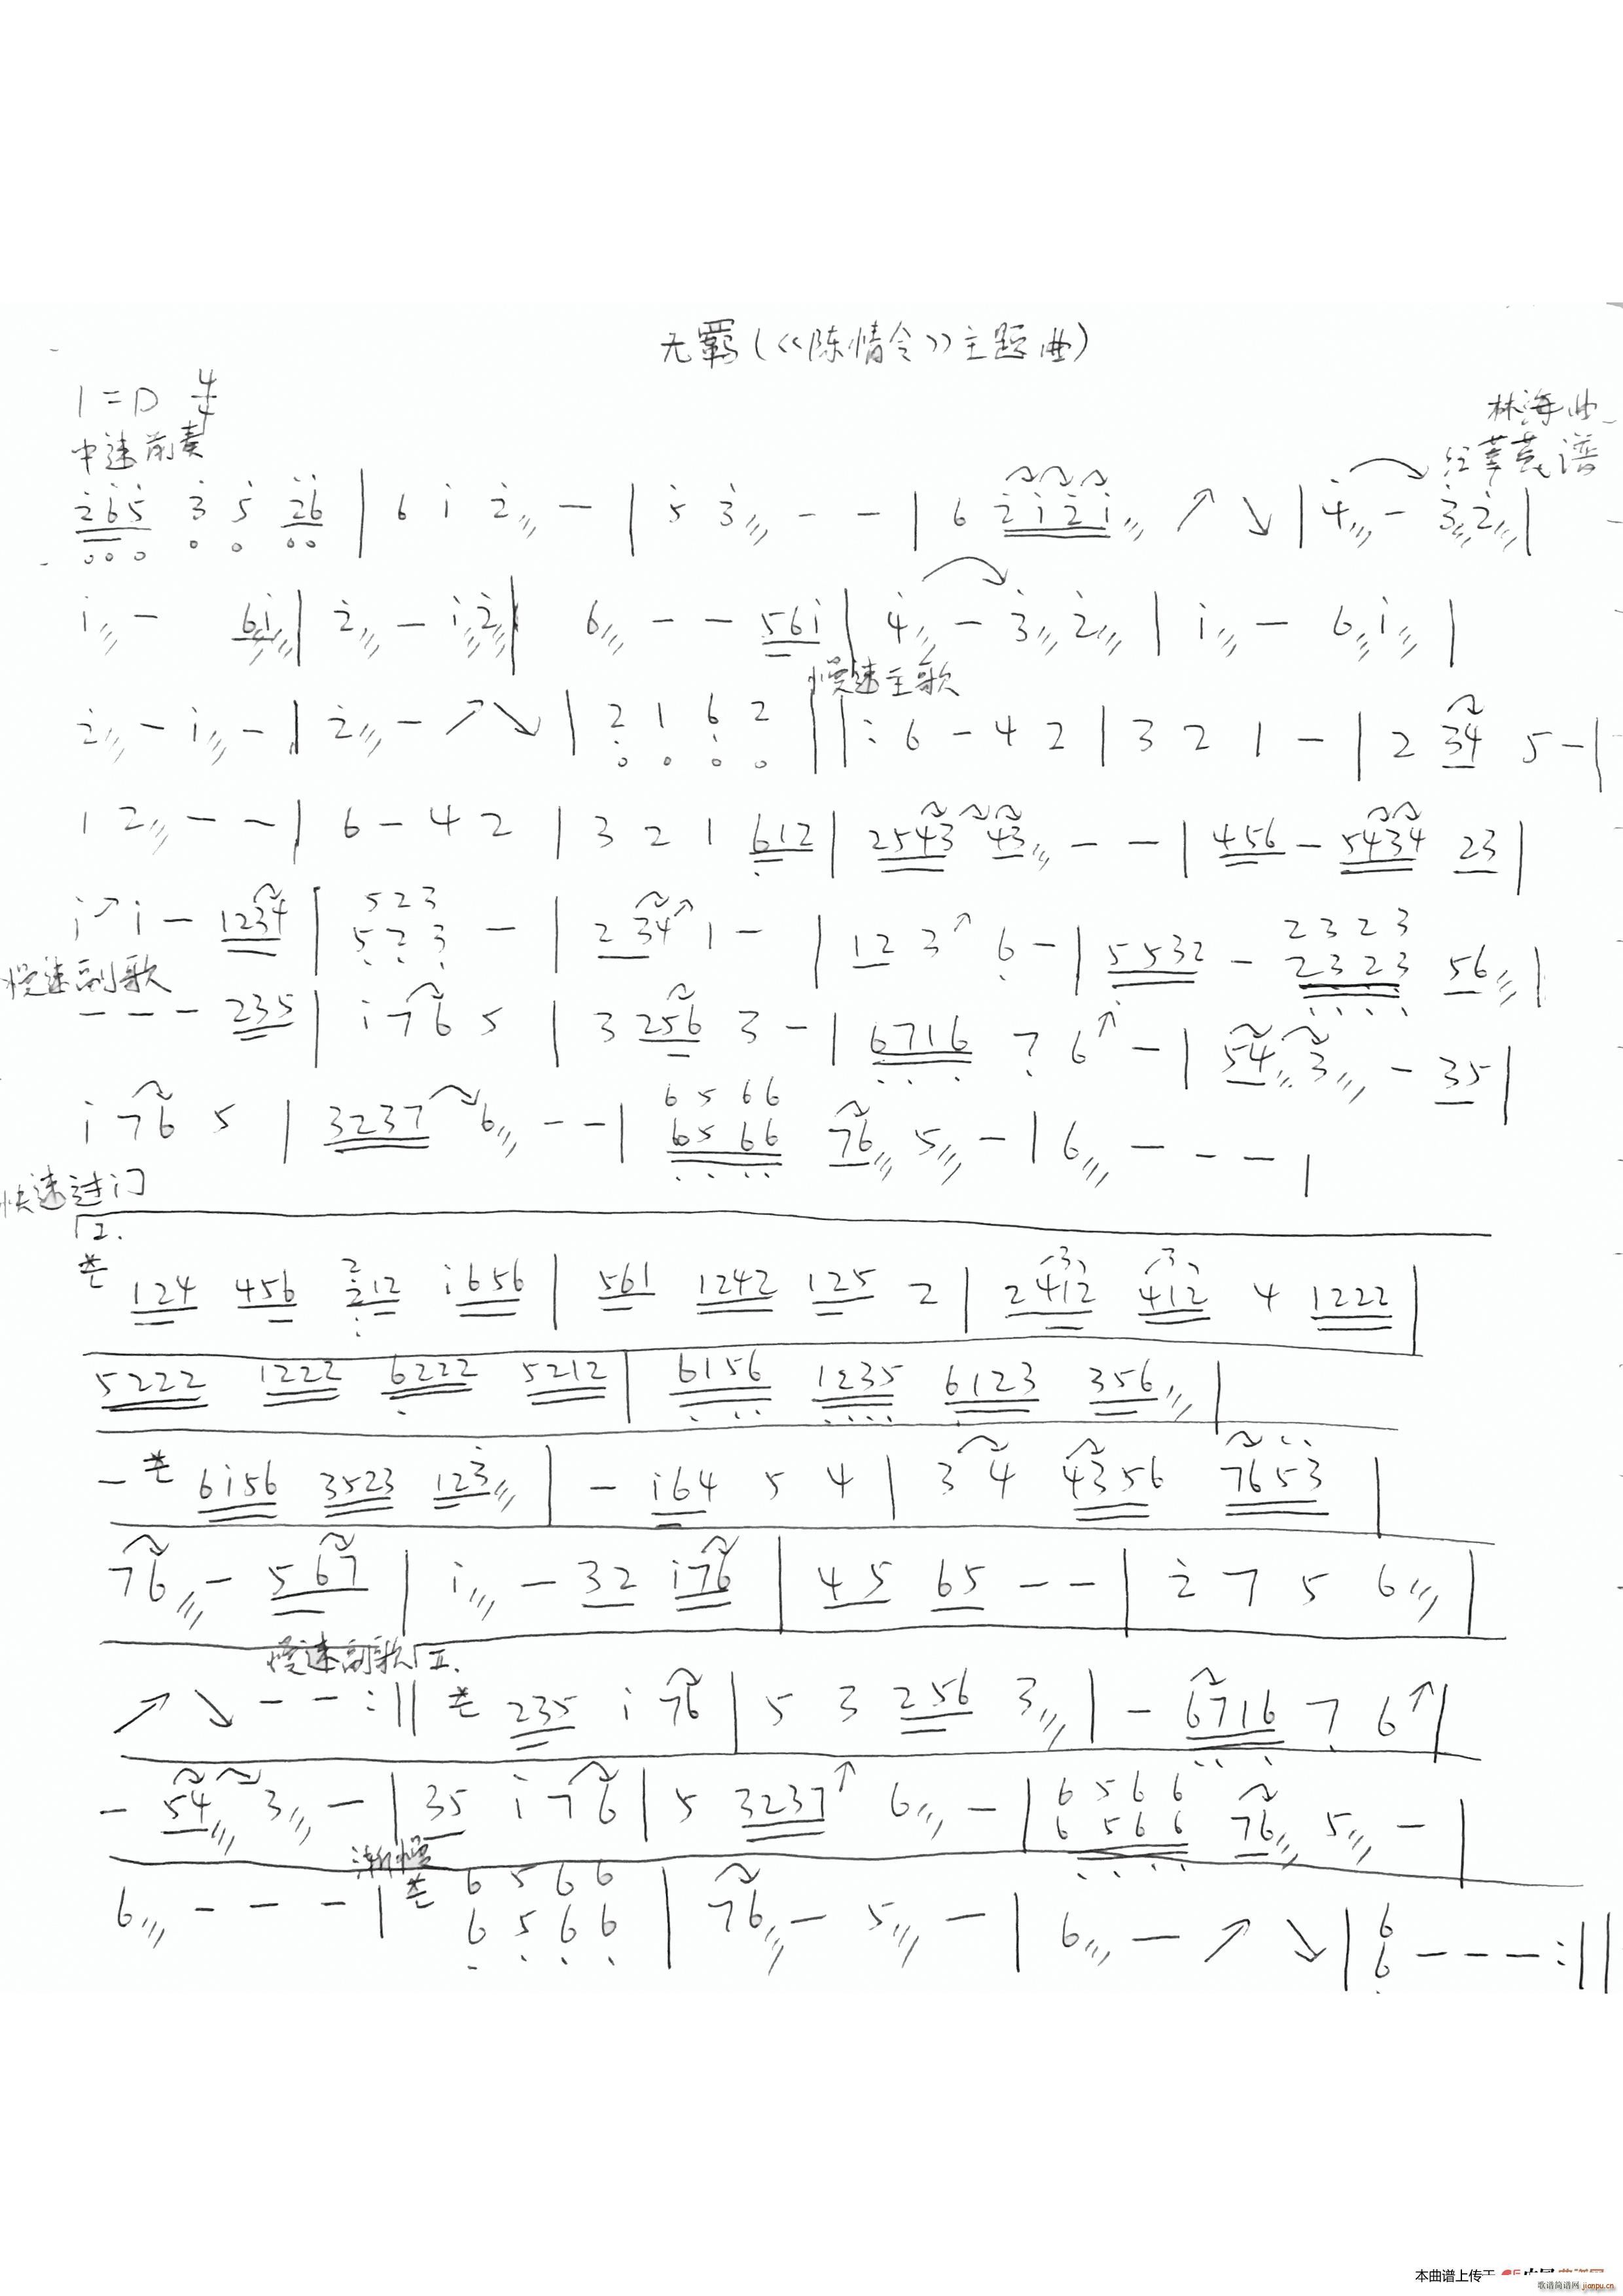 无羁(《陈情令》主题曲)
1=D 4/4
林海曲
中速前奏
谱
2̇6̇5̇ 3̇ 5̇ 2̇6̇ | 6 i 2̇ - | 5̇ 3̇ - - | 6 2̇ i 2̇ i ↗ ↘ | 4̇ - 3̇ 2̇ |
i - 6i | 2̇ - i 2̇ | 6 - - 56i | 4̇ - 3̇ 2̇ | i - 6 i |
慢速主歌
2̇ - i - | 2̇ - ↗ ↘ | 2 1 6̣ 2 ||: 6 - 4 2 | 3 2 1 - | 2 34 5 - |
1 2 - - | 6 - 4 2 | 3 2 1 6̣12 | 2543 43 - - | 456 - 5434 23 |
5 2 3 2 3 2 3
i↗ i - 1234 | 5̣ 2̣ 3̣ - | 2 34↗ 1 - | 12 3↗ 6̣ - | 5532 - 2̣3̣2̣3̣ 56 |
慢速副歌
- - - 235 | i 76 5 | 3 256 3 - | 6̣7̣16̣ 7̣ 6↑ - | 54 3 - 35 |
6 5 6 6
i 76 5 | 3237 6 - - | 6̣5̣6̣6̣ 76 5 - | 6 - - - |
快速过门
124 456 2̇12 i656 | 561 1242 125 2 | 2412 412 4 1222 |
5222 1222 6̣222 5212 | 6̣15̣6̣ 1235 6̣123 356 |
- 6i56 3523 123̇ | - i64 5 4 | 3 4 4356 7653 |
76 - 567 | i - 32 i76 | 45 65 - - | 2̇ 7 5 6 |
慢速副歌 II.
↗ ↘ - - :|| 235 i 76 | 5 3 256 3 | - 6̣7̣16̣ 7̣ 6↑ |
6 5 6 6
- 54 3 - | 35 i 76 | 5 3237↑ 6 - | 6̣ 5̣ 6̣ 6̣ 76 5 - |
渐慢
6 5 6 6 6
6 - - - | 6̣ 5̣ 6̣ 6̣ | 76 - 5 - | 6 - ↗ ↘ | 6̣ - - - :||
本曲谱上传于
歌谱简谱网 jianpu.cn